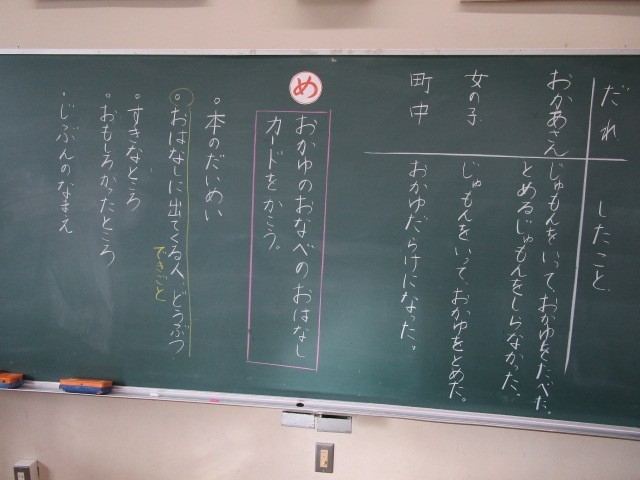 だれ したこと
おかあさん じゅもんをいって、おかゆをたべた。
とめるじゅもんをしらなかった。
女の子 じゅもんをいって、おかゆをとめた。
町中 おかゆだらけになった。
め
おかゆのおなべのおはなし
カードをかこう。
・本のだいめい
・おはなしに出てくる人、どうぶつ
できごと
・すきなところ
・おもしろかったところ
・じぶんのなまえ